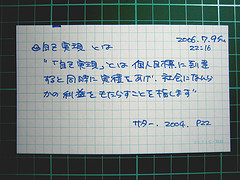 2006.7.9 Su
22:16
自己実現 とは
"「自己実現」とは 個人目標に到達
すると同時に実績をあげ、社会になんら
かの利益をもたらすことを指します"
サター. 2004. P22